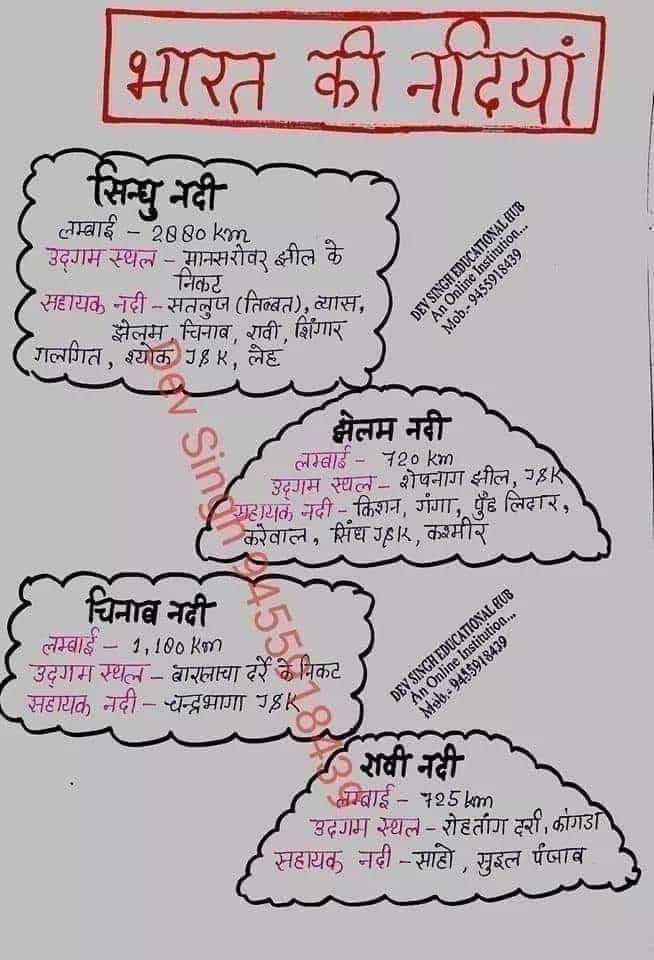 भारत की नदियां
सिन्धु नदी
लम्बाई - 2880 km
उद्गम स्थल - मानसरोवर झील के
निकट
सहायक नदी - सतलुज (तिब्बत), व्यास,
झेलम, चिनाव, रावी, शिंगार
गलगित, श्योक J&K, लेह
DEV SINGH EDUCATIONAL HUB
An Online Institution...
Mob.- 9455918439
झेलम नदी
लम्बाई - 720 km
उद्गम स्थल - शेषनाग झील, J&K
सहायक नदी - किशन, गंगा, पुँछ लिदार,
करेवाल, सिंध J&K, कश्मीर
चिनाब नदी
लम्बाई - 1,180 km
उद्गम स्थल - बारालाचा दर्रे के निकट
सहायक नदी - चन्द्रभागा J&K
DEV SINGH EDUCATIONAL HUB
An Online Institution...
Mob.- 9455918439
रावी नदी
लम्बाई - 725 km
उदगम स्थल - रोहतांग दर्रा, कांगडा
सहायक नदी - साहो, सुइल पंजाव
Dev Singh 9455918439